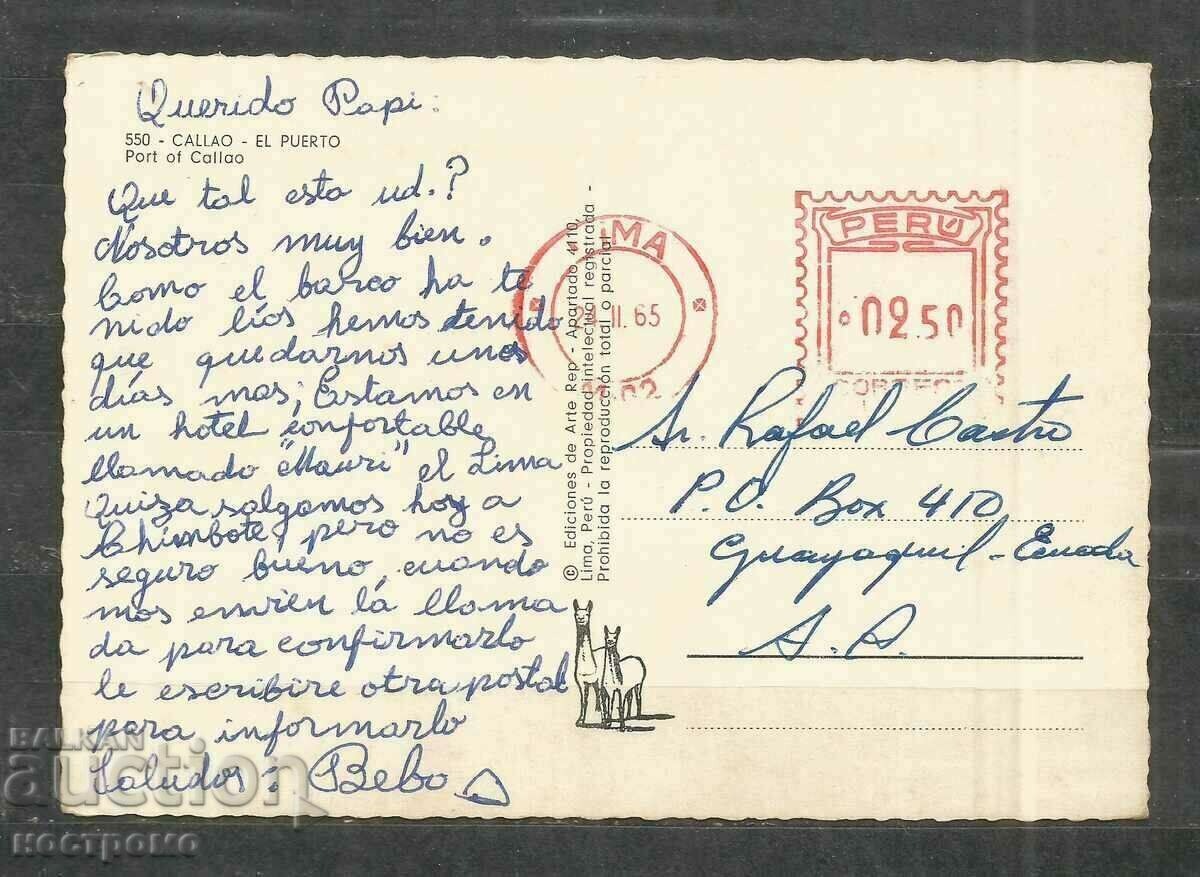 Querido Papi:
550 - CALLAO - EL PUERTO
Port of Callao
Que tal esta ud.?
Nosotros muy bien.
Como el barco ha te
nido líos hemos tenido
que quedarnos unos
días mas; Estamos en
un hotel confortable
llamado "Mauri" el Lima
Quiza salgamos hoy a
Chimbote, pero no es
seguro bueno, cuando
mos envien la llama
da para confirmarlo
le escribire otra postal
para informarlo
Saludos: Bebo
© Ediciones de Arte Rep - Apartado 4110,
Lima, Perú - Propiedad intelectual registrada -
Prohibida la reproducción total o parcial
LIMA
II. 65
PERÚ
02.50
CORREOS
Sr. Rafael Castro
P.O. Box 410
Guayaquil - Ecuador
S. A.
BALKAN
auction
костромо